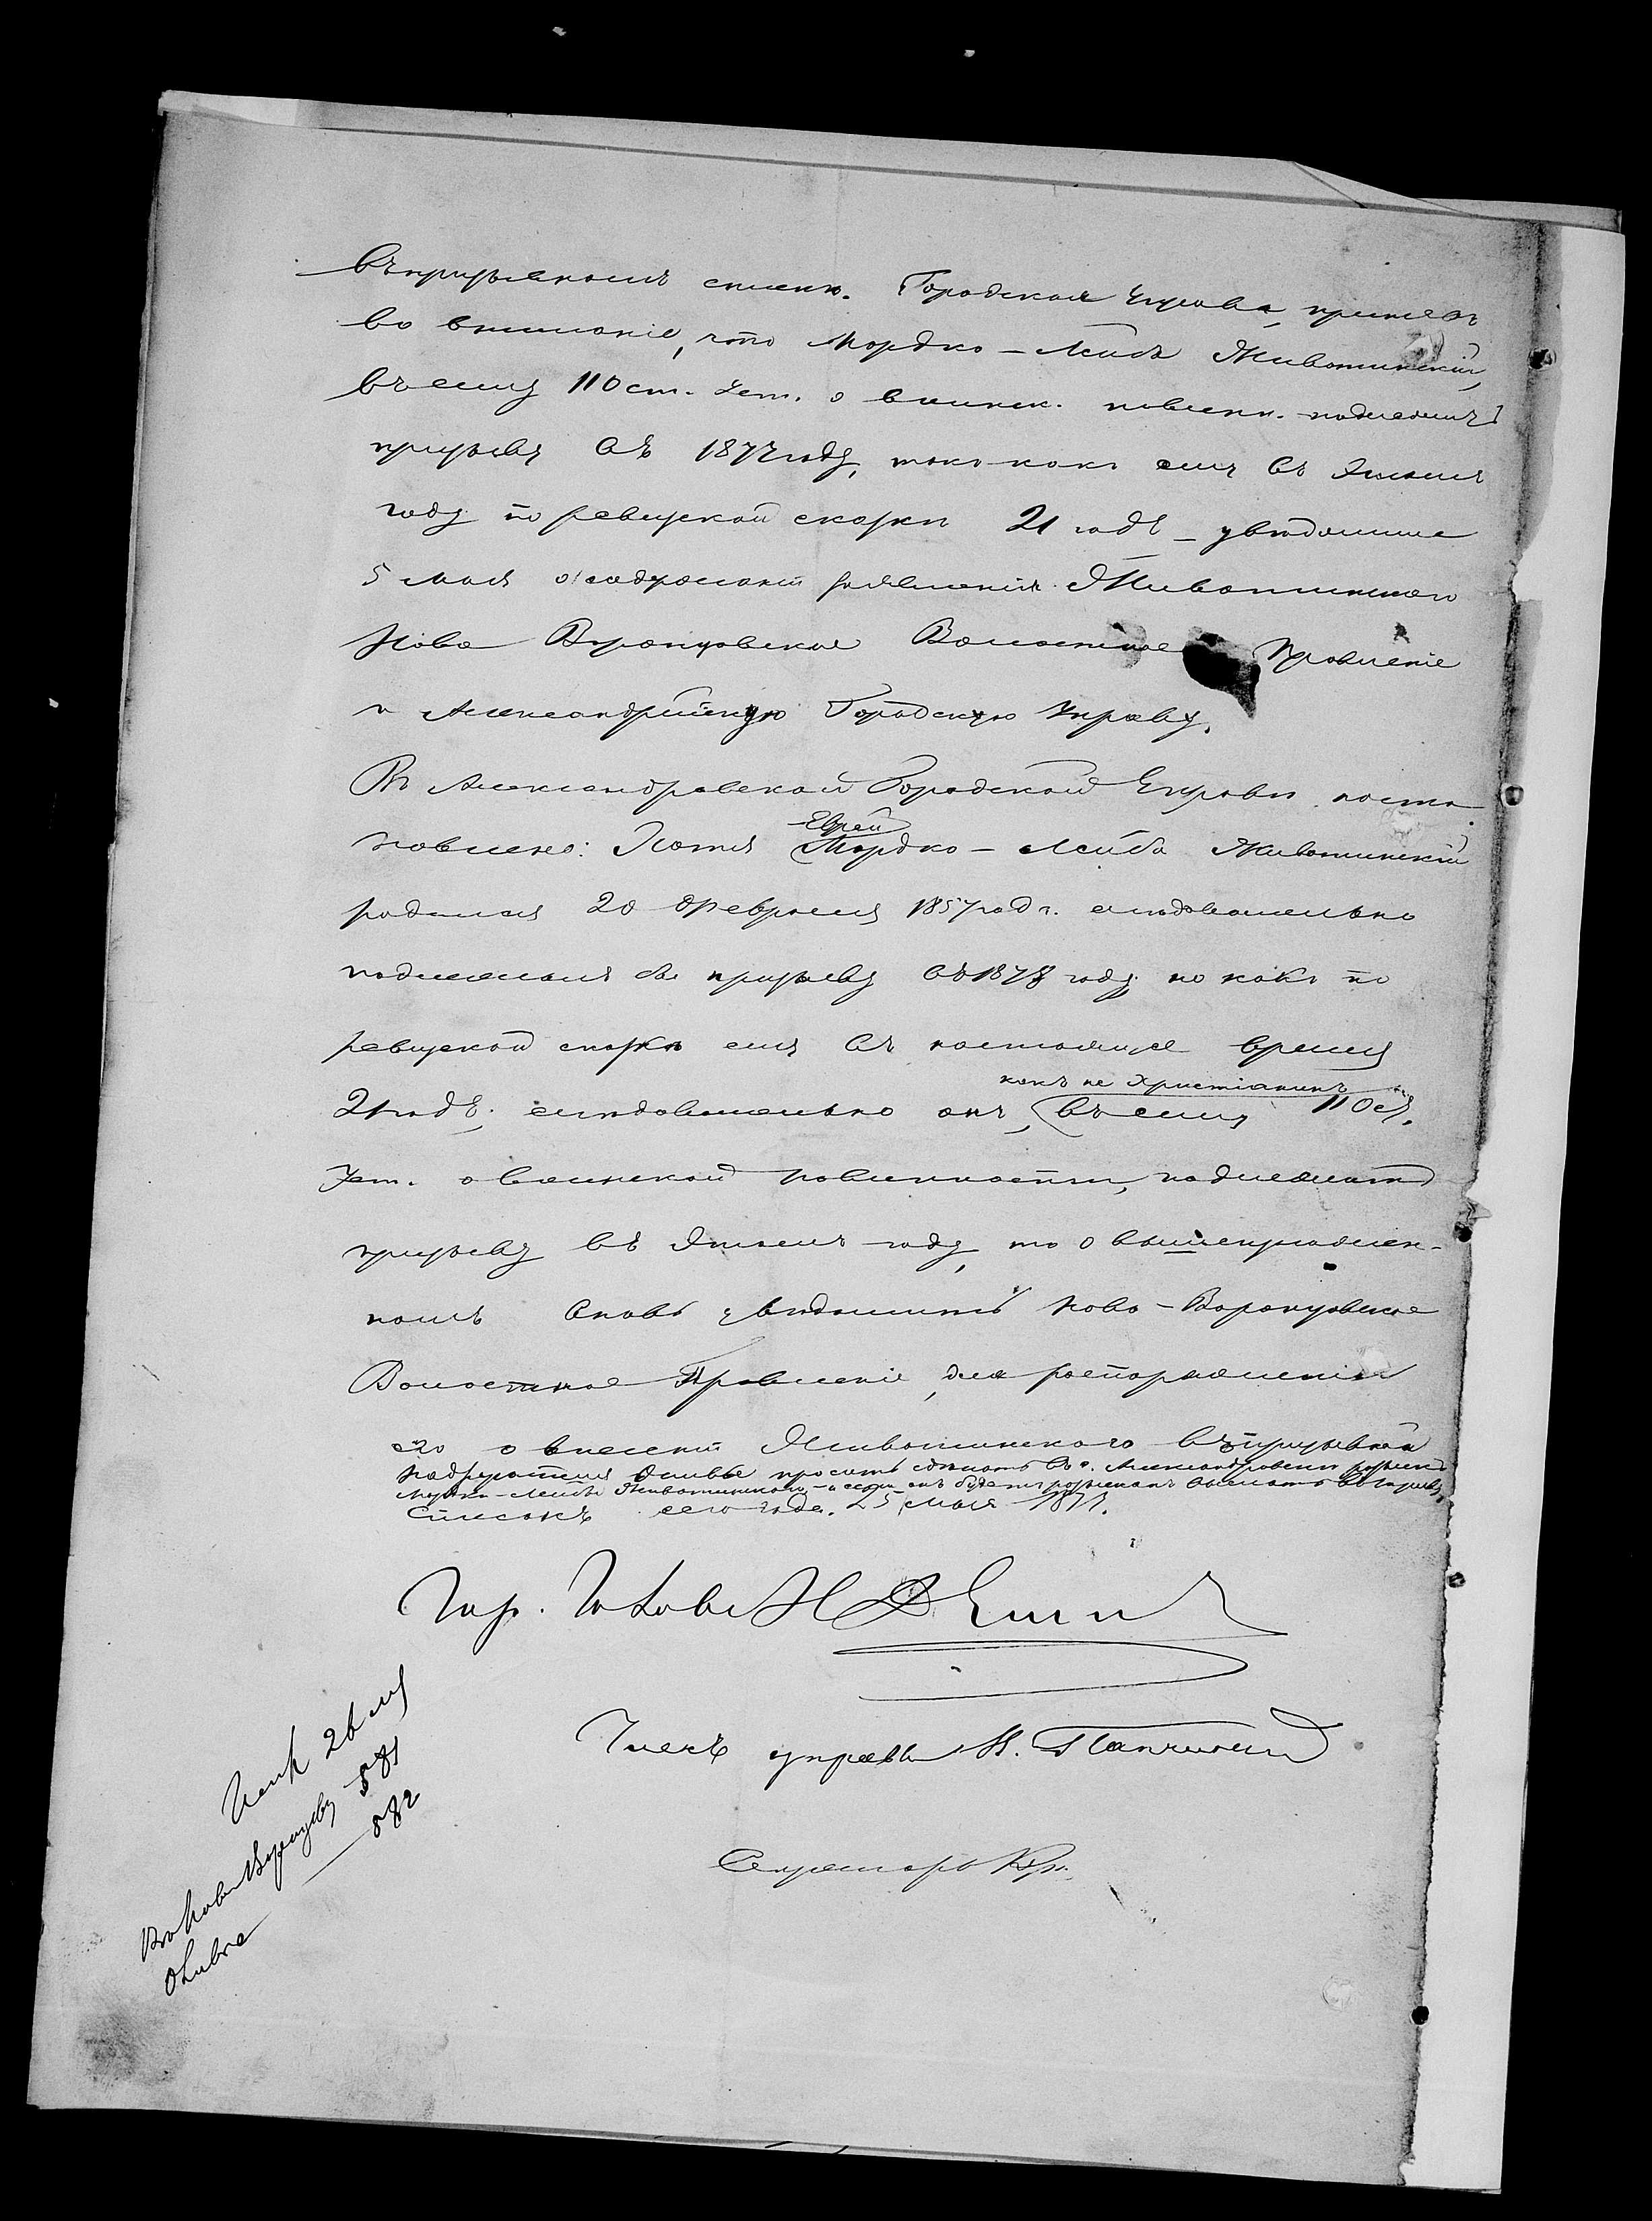 въ призывномъ списке. Городская Управа, принявъ
во вниманіе, что Мордко-Лейба Животинскій,
въ силу 110 ст. Уст. о воинск. повинн. подлежитъ
призыву въ 1877 году, такъ какъ ему въ этомъ
году по ревизской сказке 21 годъ – уведомила
5 Мая о содержаніи заявленія Животинскаго
Ново Воронцовское Волостное Правленіе
и Александрійскую Городскую Управу.
Въ Александровской Городской Управе поста-
Еврей
новлено: Хотя Мордко-Лейба Животинскій
родился 20 Февраля 1857 года. следовательно
подлежалъ бы призыву въ 1878 году но какъ по
ревизской сказке ему въ настоящее время
какъ не Христіанинъ
21 годъ, следовательно онъ, въ силу 110 ст.
Уст. о воинской повинности, подлежитъ
призыву въ этомъ году, то о вышеизложен-
номъ вновь уведомить Ново-Воронцовское
Волостное Правленіе, для распоряженія
его о внесеніи Животинскаго въ призывной
просить сделать въ г. Александровске розыскъ
Мордки-Лейбы Животинскаго – и если онъ будетъ розысканъ выслать
списокъ сего года. 25 Мая 1877.
Гор. Голова Н
Членъ управы Н.
Секретарь
Исп 26 мая
581
582